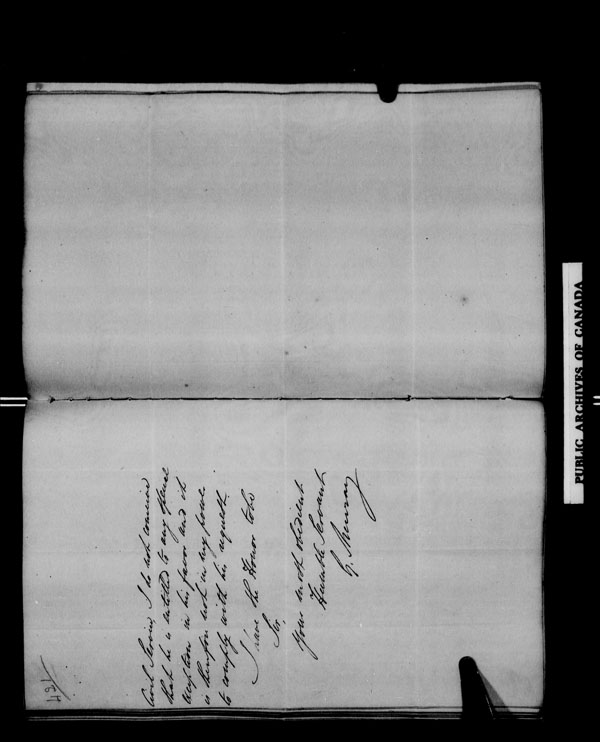 Civil Service, I do not conceive
that he is entitled to any special
exception in his favor and it
is therefore not in my power
to comply with his request.
I have the Honor to be
Sir,
Your most obedient
Humble Servant
G. Murray
PUBLIC ARCHIVES OF CANADA